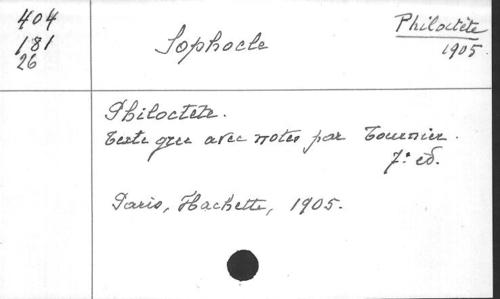 404
181
26
Sophocle
Philoctète
1905
Philoctète.
Texte grec avec notes par Tournier.
7e ed.
Paris, Hachette, 1905.